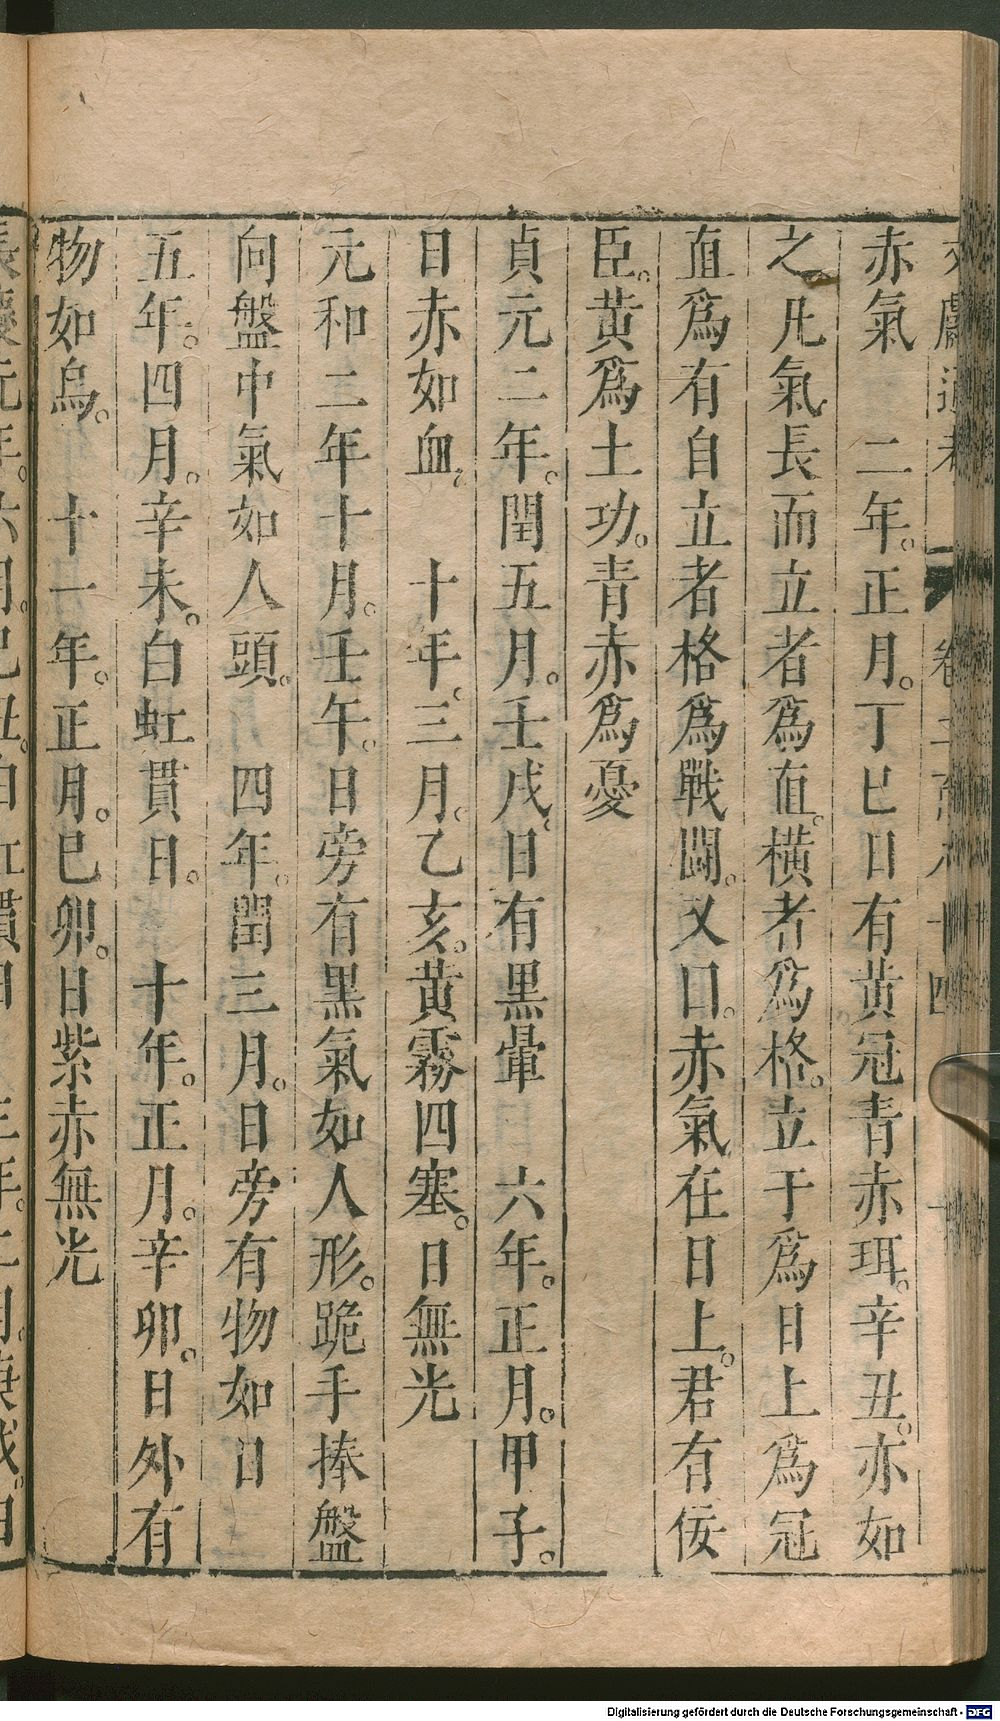 赤氣　二年。正月。丁巳日有黃冠青赤珥。辛丑。亦如
之。凡氣長而立者爲直。橫者爲格。立于爲日上爲冠
直爲有自立者格爲戰鬭。又曰。赤氣在日上。君有佞
臣。黃爲土功。青赤爲憂
貞元二年。閏五月。壬戌。日有黑暈　六年。正月。甲子。
日赤如血。　十年。三月。乙亥。黃霧四塞。日無光
元和二年十月。壬午。日旁有黑氣如人形。跪手捧盤
向盤中氣如人頭。　四年。閏三月。日旁有物如日
五年。四月。辛未。白虹貫日。　十年。正月。辛卯。日外有
物如烏。　十一年。正月。巳卯。日紫赤無光
Digitalisierung gefördert durch die Deutsche Forschungsgemeinschaft - DFG